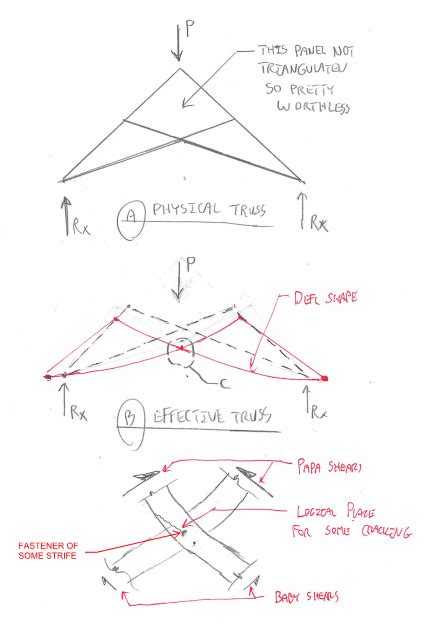 P
THIS PANEL NOT
TRIANGULATED
SO PRETTY
WORTHLESS
Rx
Rx
A PHYSICAL TRUSS
P
DEFL SHAPE
C
Rx
Rx
B EFFECTIVE TRUSS
PAPA SHEARS
LOGICAL PLACE
FOR SOME CRACKING
FASTENER OF
SOME STRIFE
BABY SHEARS